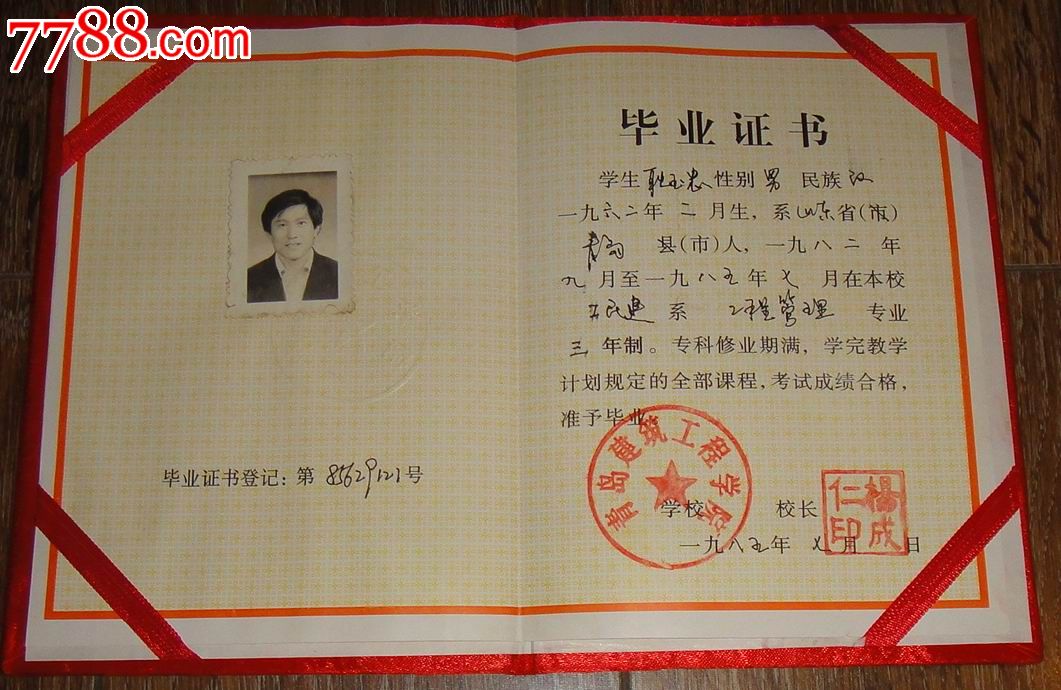 7788.com
毕业证书
学生 耿玉忠 性别 男 民族 汉
一九六二年 二 月生，系山东省（市）
青岛 县（市）人，一九八二 年
九 月至一九八五年 七 月在本校
工民建 系 工程管理 专业
三 年制。专科修业期满，学完教学
计划规定的全部课程，考试成绩合格，
准予毕业。
青岛建筑工程学院
学校 校长
楊成仁印
一九八五年 七 月 日
毕业证书登记：第 8562912 号